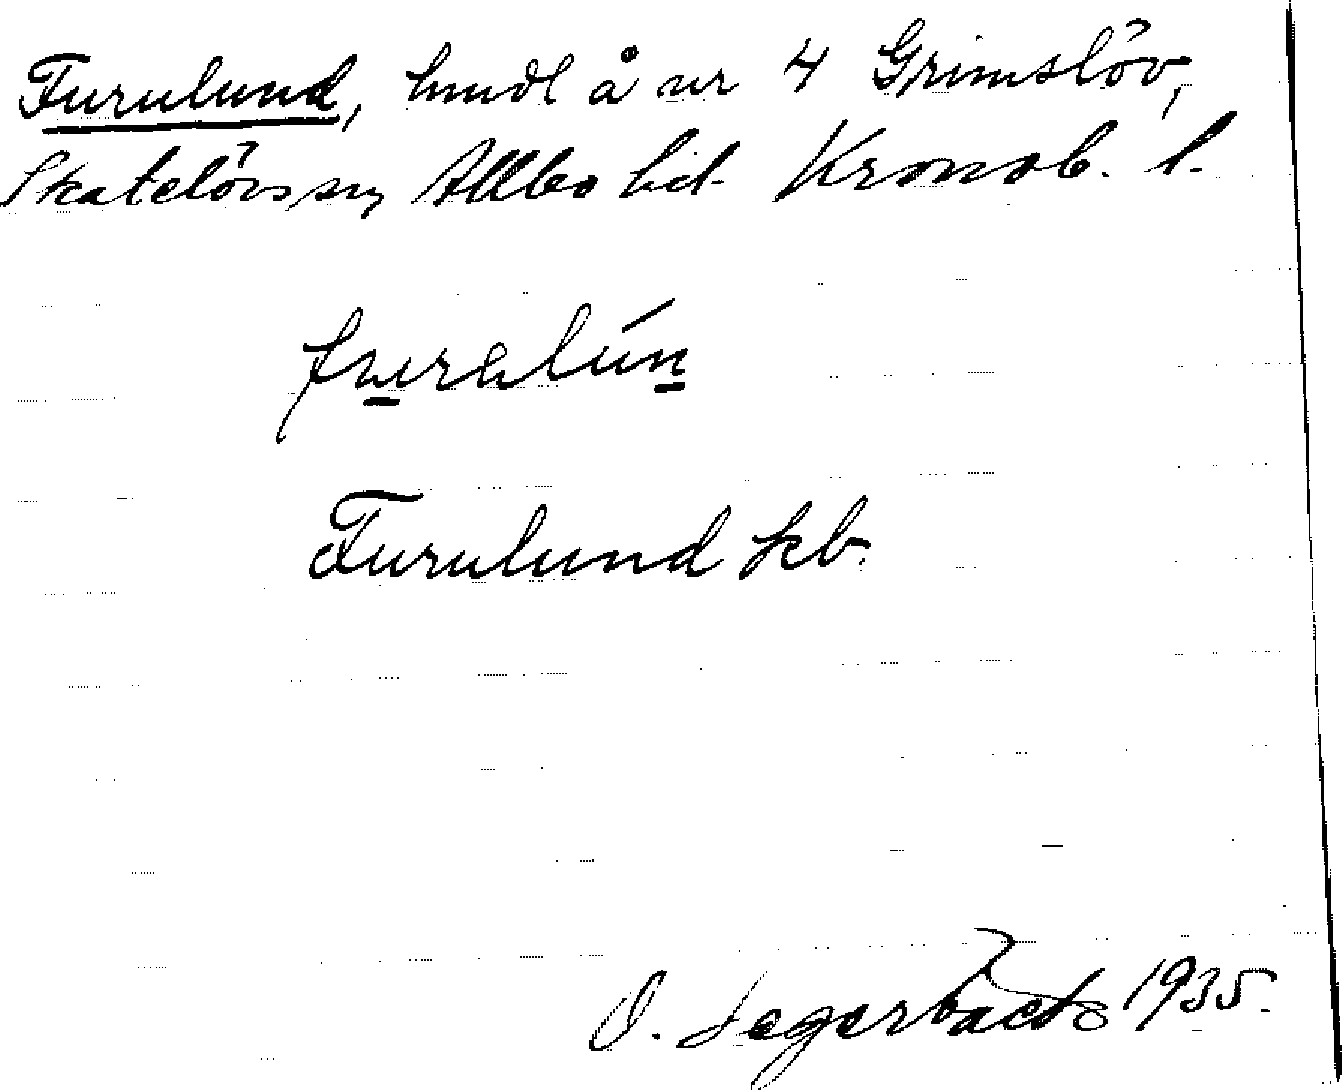 Furulund, hmdl å nr 4 Grimslöv,
Skatelövs sn, Allbo hd. Kronob. l.
furalún
Furulund kb.
O. Segerbäck 1935.